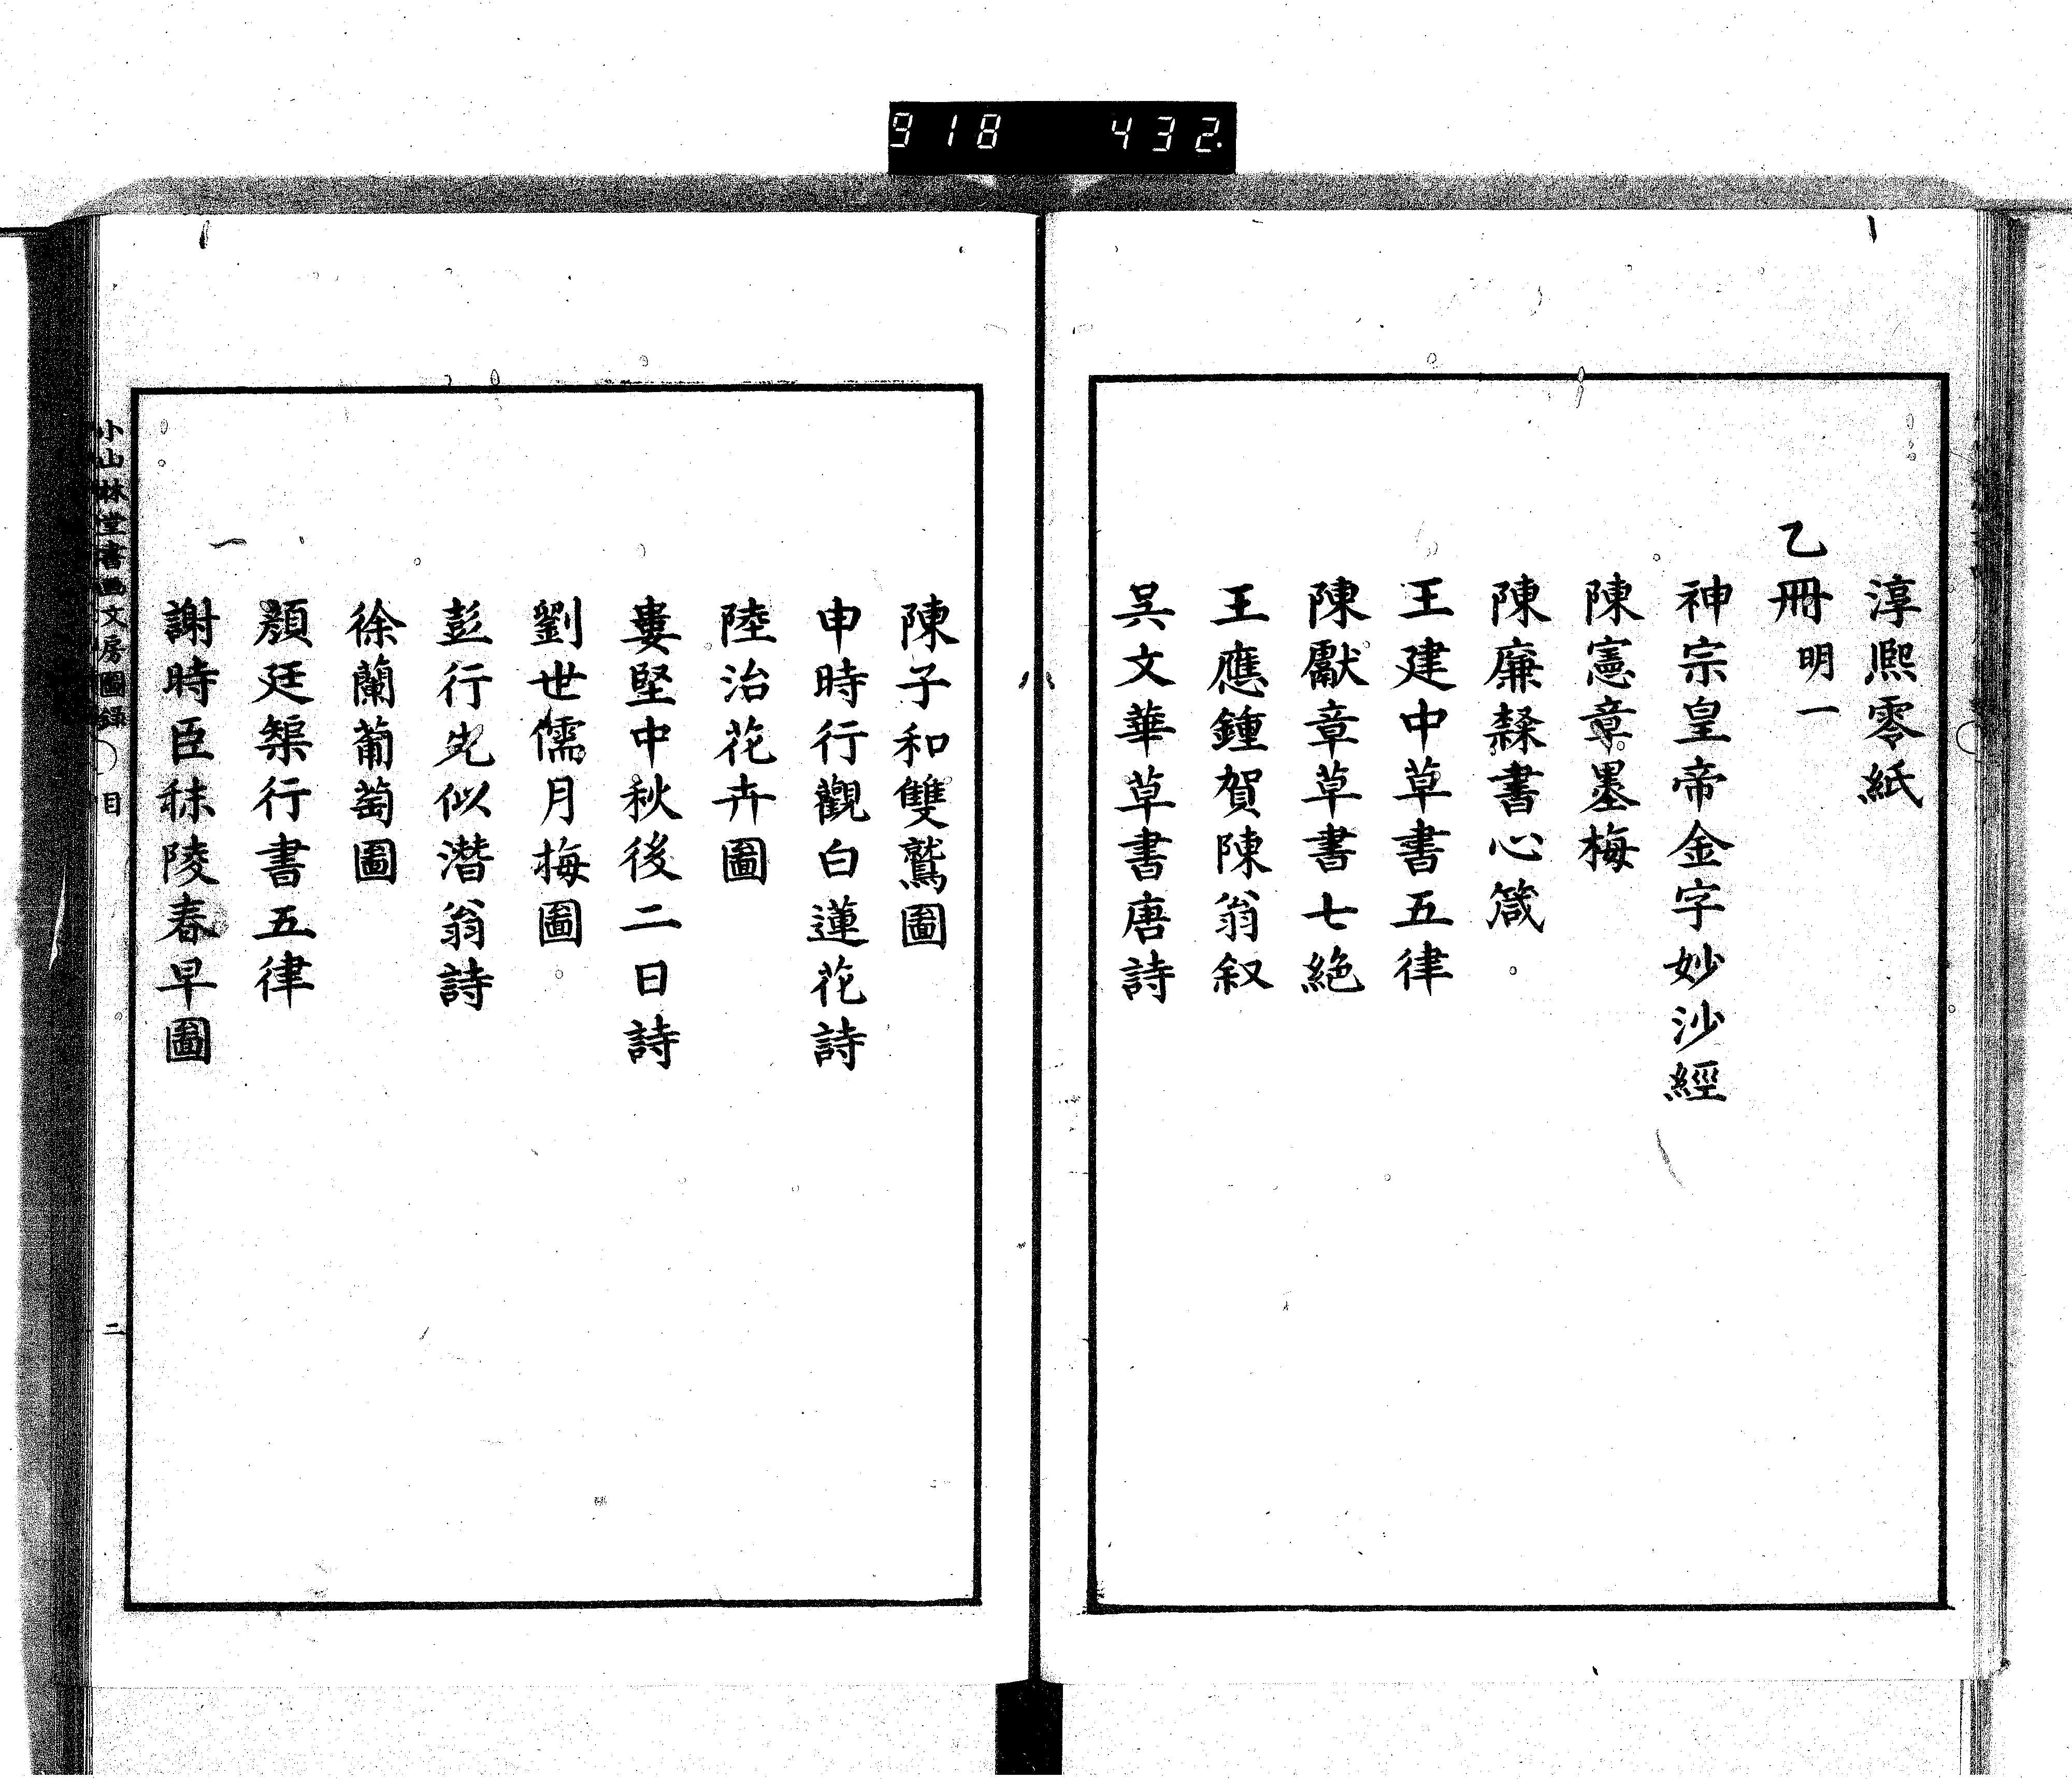 918 432.
淳熙零紙
乙冊 明一
神宗皇帝金字妙沙經
陳憲章墨梅
陳廉隸書心箴
王建中草書五律
陳獻章草書七絶
王應鍾賀陳翁叙
吴文華草書唐詩
陳子和雙鷲圖
申時行觀白蓮花詩
陸治花卉圖
婁堅中秋後二日詩
劉世儒月梅圖
彭行先似潛翁詩
徐蘭葡萄圖
顏廷榘行書五律
謝時臣秣陵春早圖
小山林堂書画文房圖録 目 二